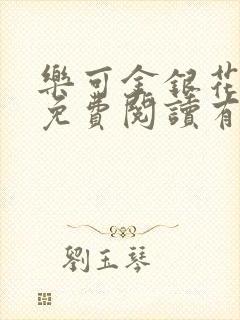 樂可金銀花
免費閱讀有
劉玉琴